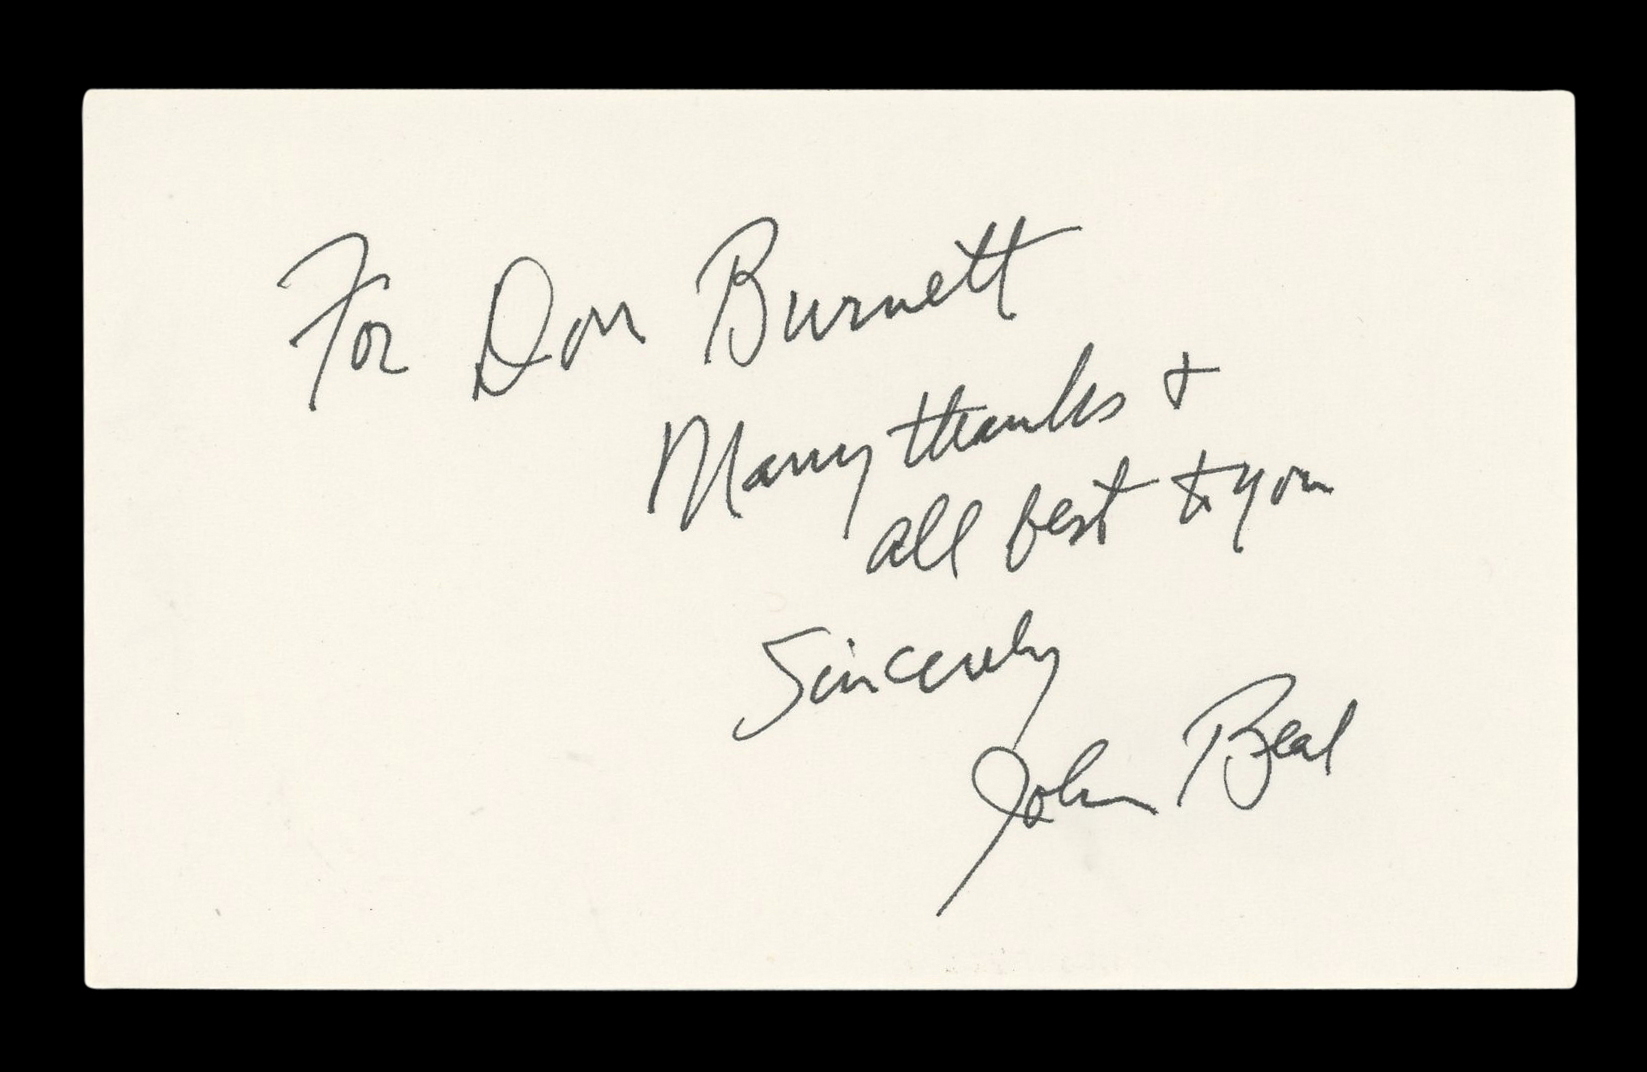 For Don Burnett
Many thanks +
all best to you
Sincerely
John Beal